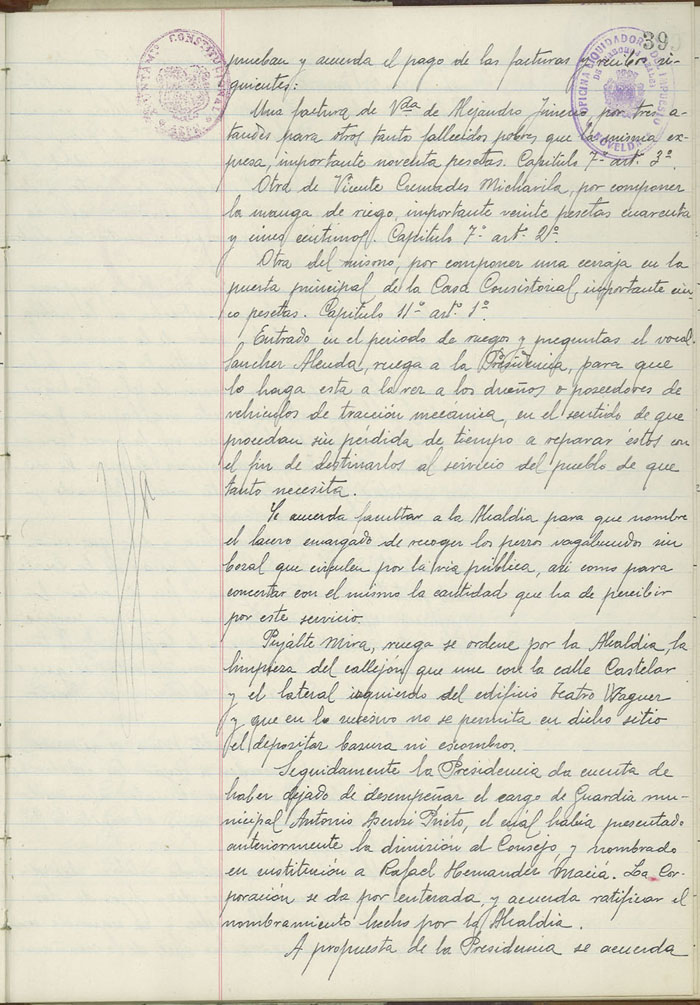 39
AYUNTAMTO CONSTITUCIONAL
OFICINA LIQUIDADORA DEL IMPUESTO
NOVELDA
prueban y acuerda el pago de las facturas y recibos si-
guientes:
Una factura de Vda de Alejandro Jimeno por tres a-
taudes para otros tanto fallecidos pobres que la misma ex-
presa, importante noventa pesetas. Capitulo 7º art. 3º.
Otra de Vicente Cremades Michavila, por componer
la manga de riego, importante veinte pesetas cuarenta
y cinco centimos. Capitulo 7º artº 2º.
Otra del mismo, por componer una cerraja en la
puerta principal de la Casa Consistorial, importante cin-
co pesetas. Capitulo 11º artº 1º.
Entrado en el periodo de ruegos y preguntas el vocal
Sancher Alenda, ruega a la Presidencia, para que
lo haga esta a la vez a los dueños o poseedores de
vehiculos de tracción mecánica, en el sentido de que
procedan sin pérdida de tiempo a reparar éstos con
el fin de destinarlos al servicio del pueblo de que
tanto necesita.
Se acuerda facultar a la Alcaldia para que nombre
el lacero encargado de recoger los perros vagabundos sin
bozal que circulen por la via pública, asi como para
concertar con el mismo la cantidad que ha de percibir
por este servicio.
Pujalte Mira, ruega se ordene por la Alcaldia, la
limpieza del callejon que une con la calle Castelar
y el lateral izquierdo del edificio teatro Wagner
y que en lo sucesivo no se permita en dicho sitio
el depositar basura ni escombros.
Seguidamente la Presidencia da cuenta de
haber dejado de desempeñar el cargo de Guardia mu-
nicipal Antonio Prieto, el cual habia presentado
anteriormente la dimisión al Consejo y nombrado
en sustitución a Rafael Hernander Maciá. La Cor-
poración se da por enterada, y acuerda ratificar el
nombramiento hecho por la Alcaldia.
A propuesta de la Presidencia se acuerda